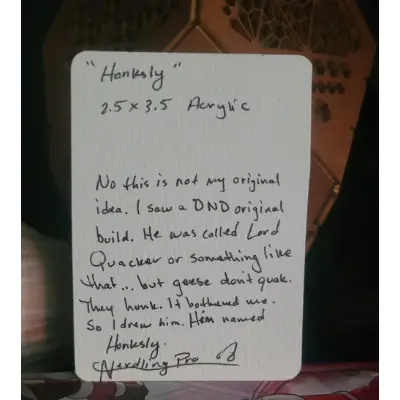 "Honksly"
2.5 x 3.5 Acrylic
No this is not my original
idea. I saw a DND original
build. He was called Lord
Quacker or something like
that... but geese don't quak.
They honk. It bothered me.
So I drew him. Him named
Honksly.
Nerdling Pro